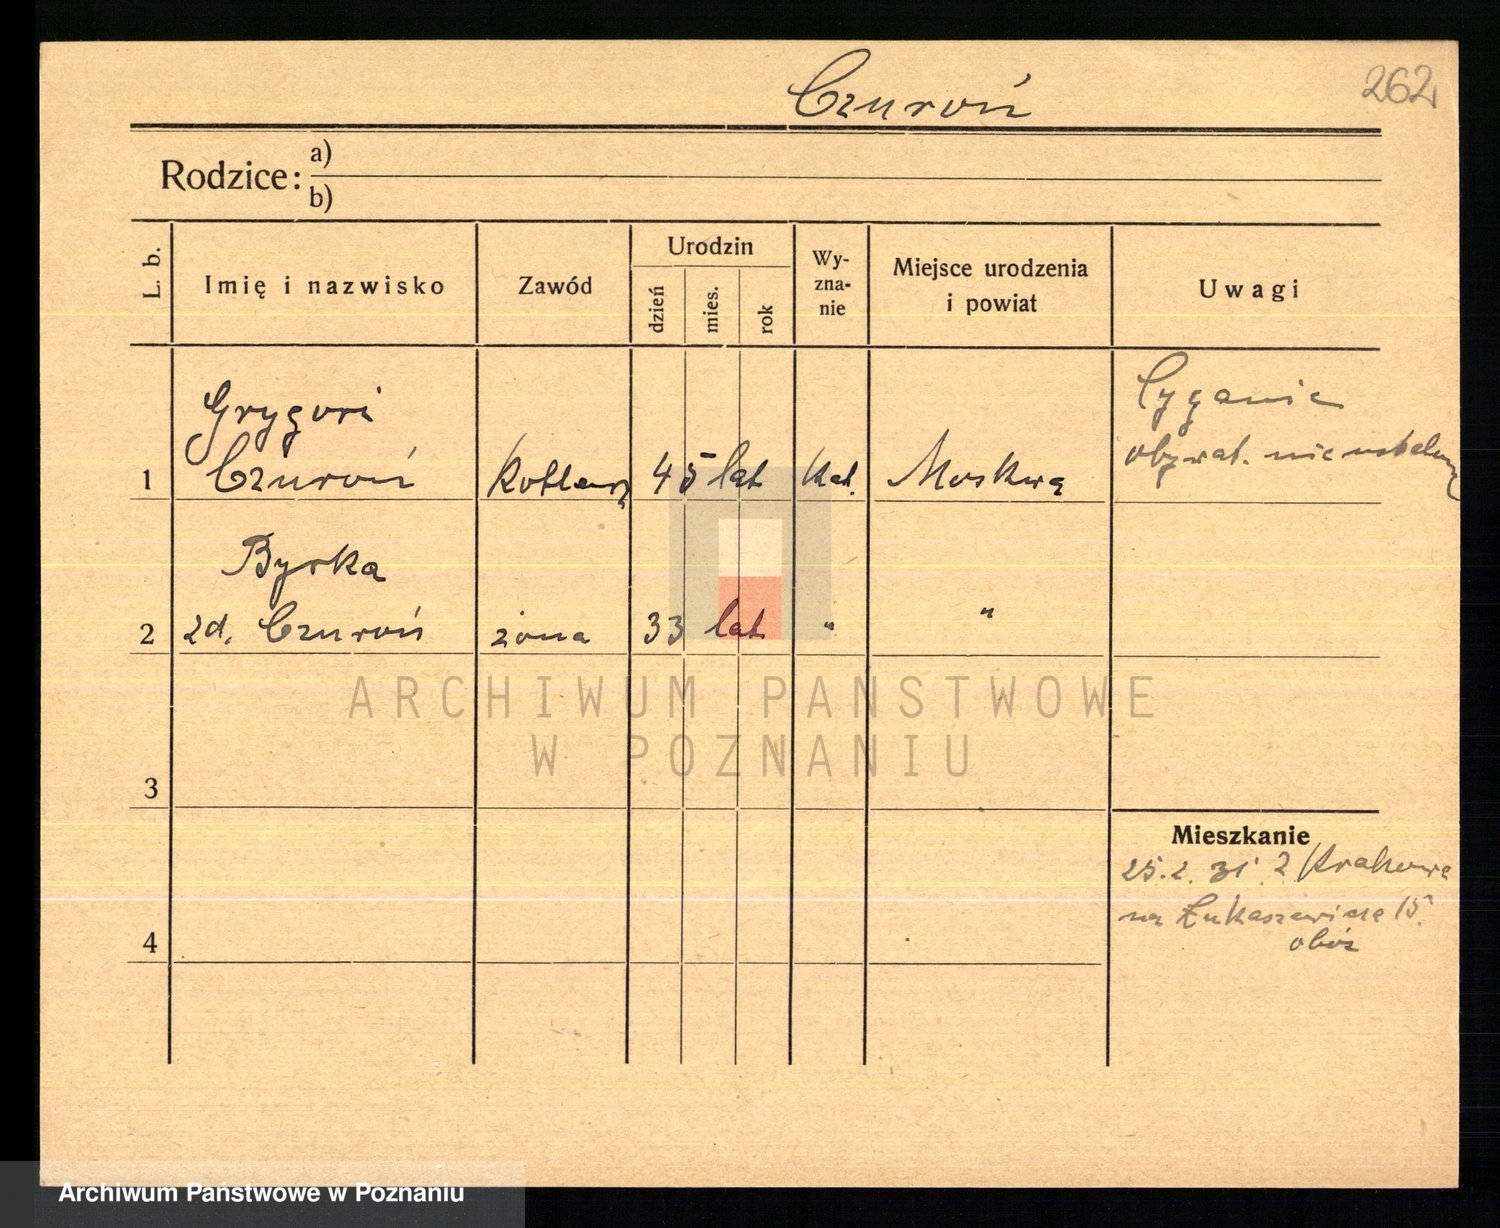 Czuroń
262
Rodzice: a)
b)
L. b.
Imię i nazwisko
Zawód
Urodzin
dzień
mies.
rok
Wy-
zna-
nie
Miejsce urodzenia
i powiat
Uwagi
Grygori
Czuroń
1
Kotlarz
45 lat
Kat.
Moskwa
Cyganie
obywat. nie ustalony
Byrka
2 zd. Czuroń
żona
33 lat
"
"
ARCHIWUM PANSTWOWE
W POZNANIU
3
Mieszkanie
25.2.31 z Krakowa
na Łukaszewicza 15.
obóz
4
Archiwum Państwowe w Poznaniu